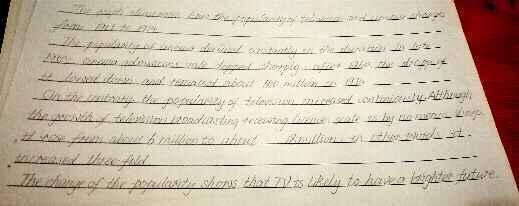 The graph shows how the popularity of television and cinema changes
from 1957 to 1974.
The popularity of cinema declined constantly in the duration. In late
1950s cinema admissions rate dropped sharply. After 1960, the decrease
it slowed down and remained about 100 million in 1974.
On the contrary, the popularity of television increased continuously. Although
the growth of television broadcasting receiving licences scale is by no means sharp,
it rose from about 6 million to about 18 million. In other words, it
increased three fold.
The change of the popularity shows that TV is likely to have a brighter future.